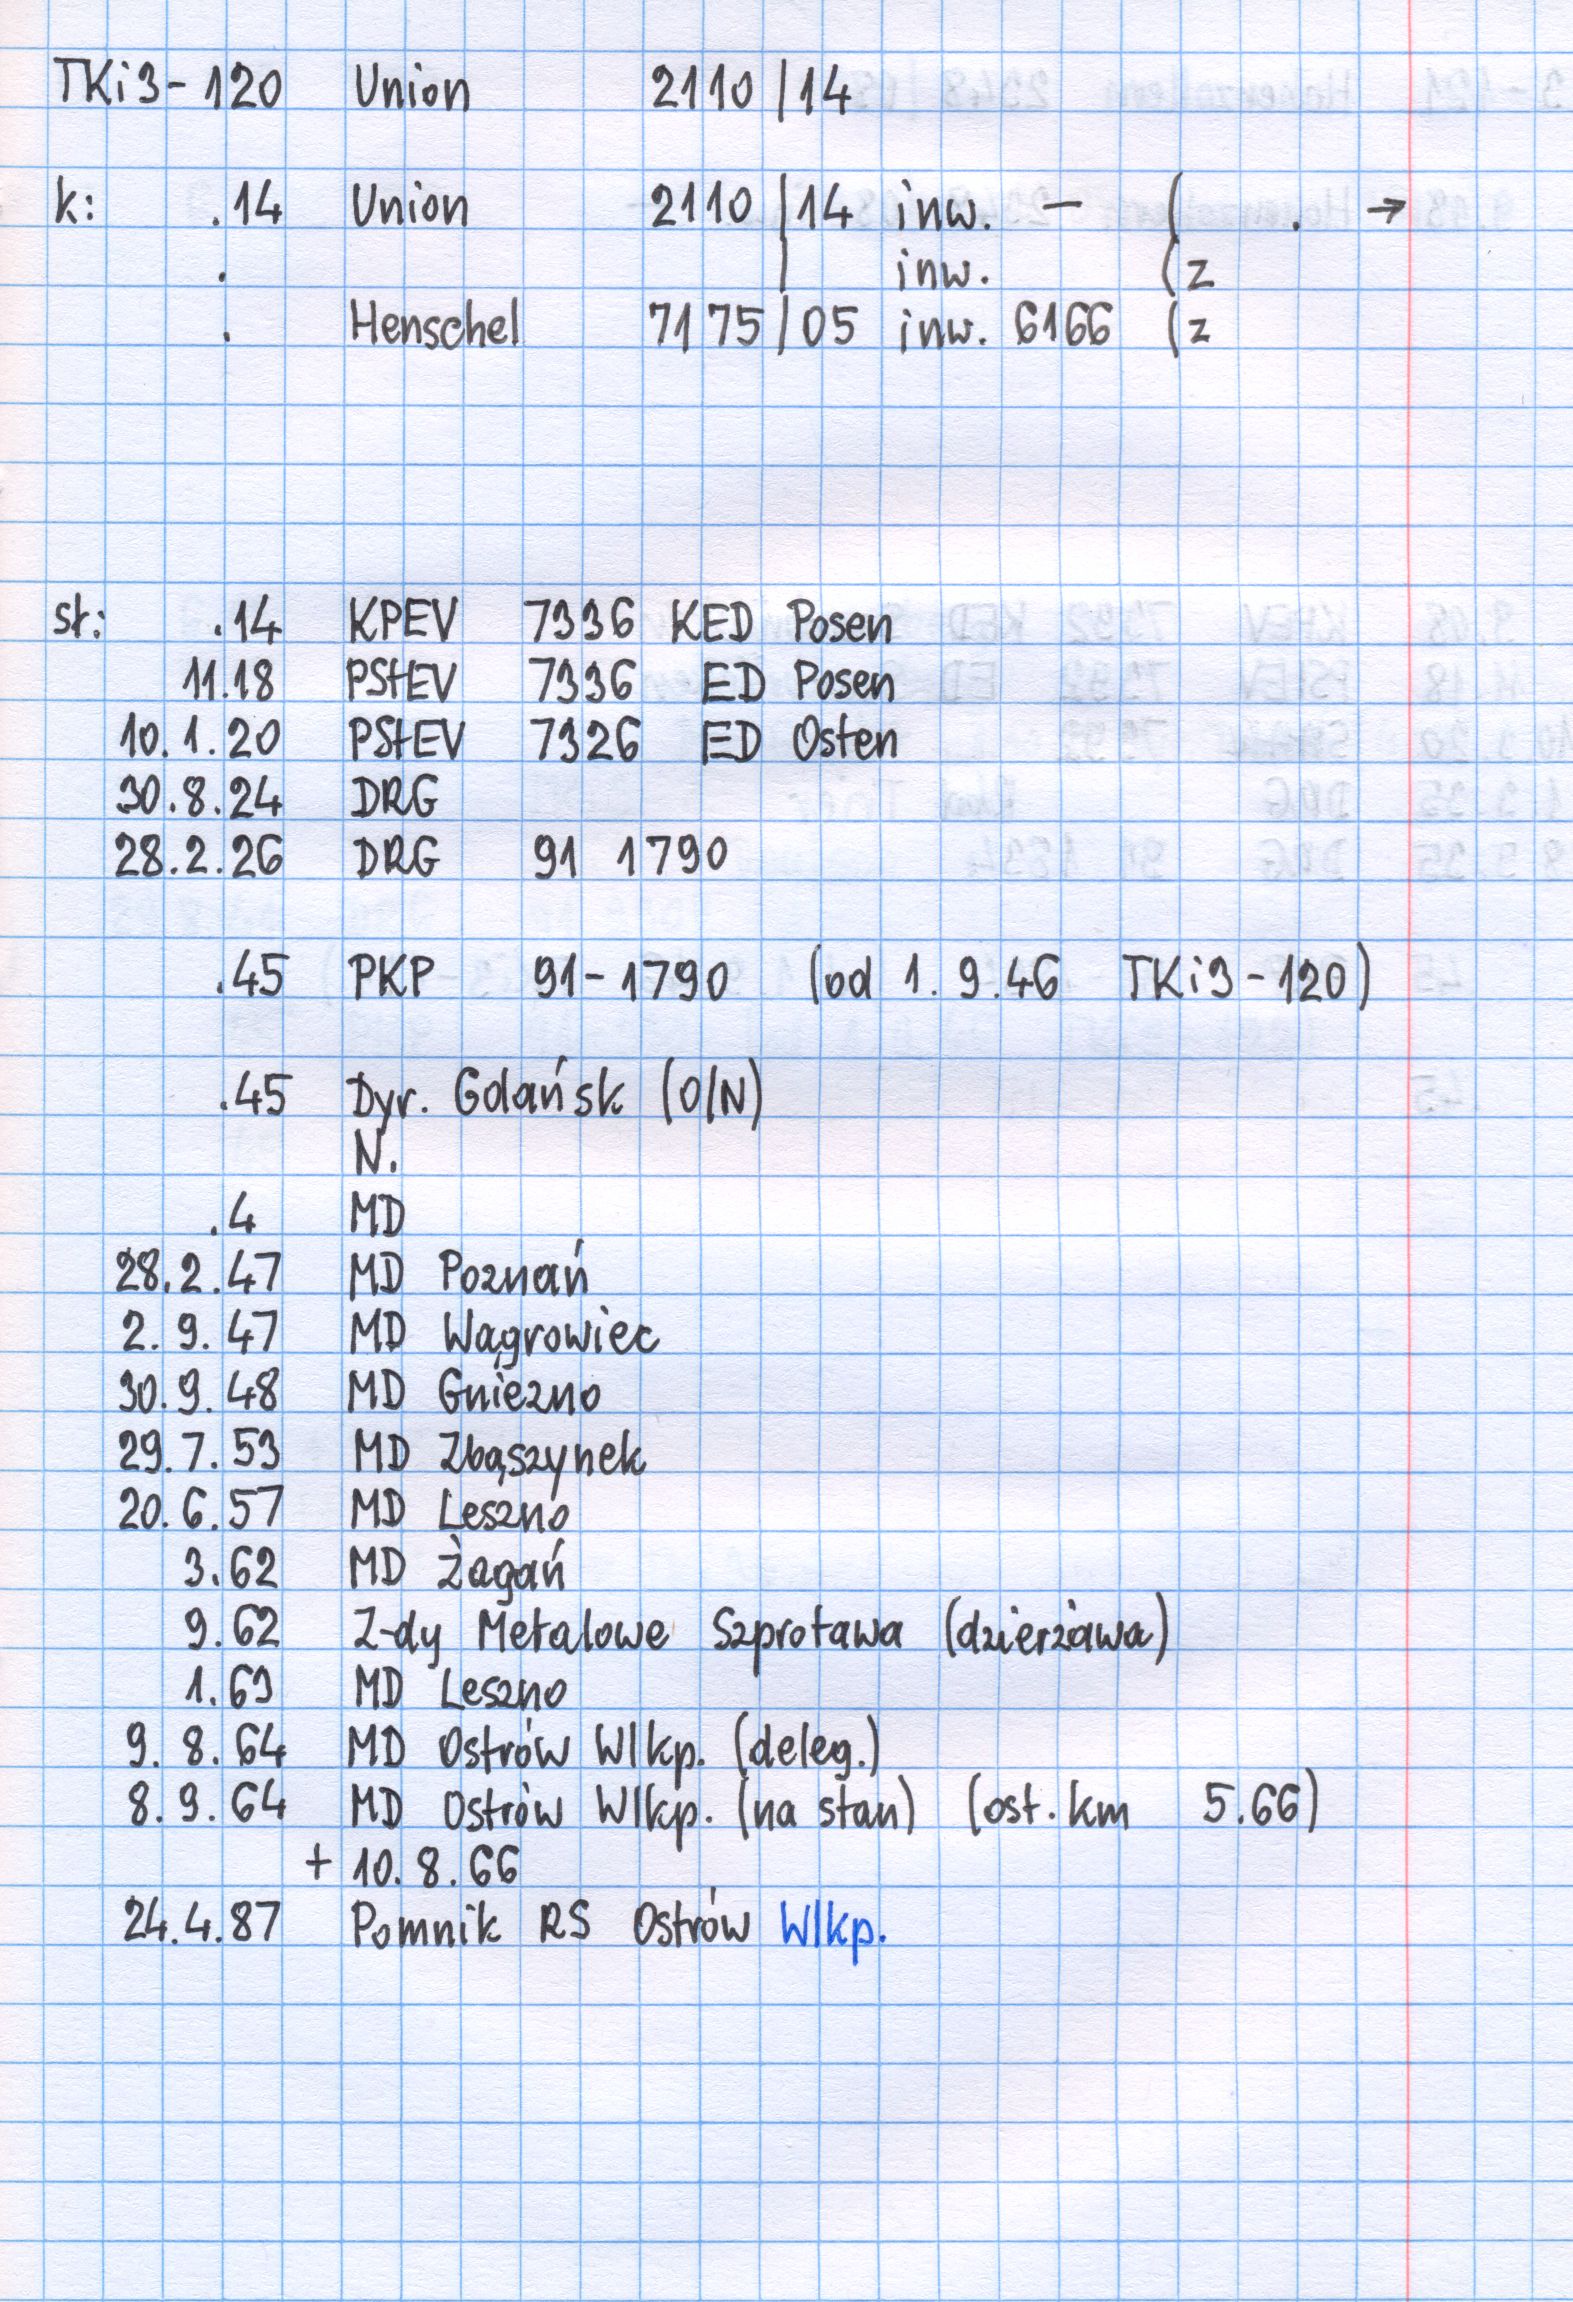 TKi3-120 Union 2110/14
k: .14 Union 2110/14 inw. – ( . →
. / inw. (z
. Henschel 7175/05 inw. 6166 (z
st: .14 KPEV 7336 KED Posen
11.18 PStEV 7336 ED Posen
10.1.20 PStEV 7326 ED Osten
30.8.24 DRG
28.2.26 DRG 91 1790
.45 PKP 91-1790 (od 1.9.46 TKi3-120)
.45 Dyr. Gdańsk (O/N)
N.
.4 MD
28.2.47 MD Poznań
2.9.47 MD Wągrowiec
30.9.48 MD Gniezno
29.7.53 MD Zbąszynek
20.6.57 MD Leszno
3.62 MD Żagań
9.62 Z-dy Metalowe Szprotawa (dzierżawa)
1.63 MD Leszno
9.8.64 MD Ostrów Wlkp. (deleg.)
8.9.64 MD Ostrów Wlkp. (na stan) (ost. km 5.66)
+ 10.8.66
24.4.87 Pomnik RS Ostrów Wlkp.